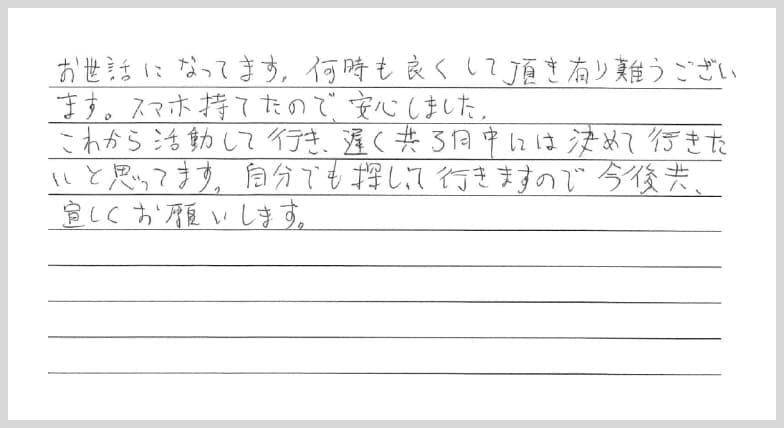 お世話になってます。何時も良くして頂き有り難うござい
ます。スマホ持てたので、安心しました。
これから活動して行き、遅く共3月中には決めて行きた
いと思ってます。自分でも探して行きますので今後共、
宜しくお願いします。